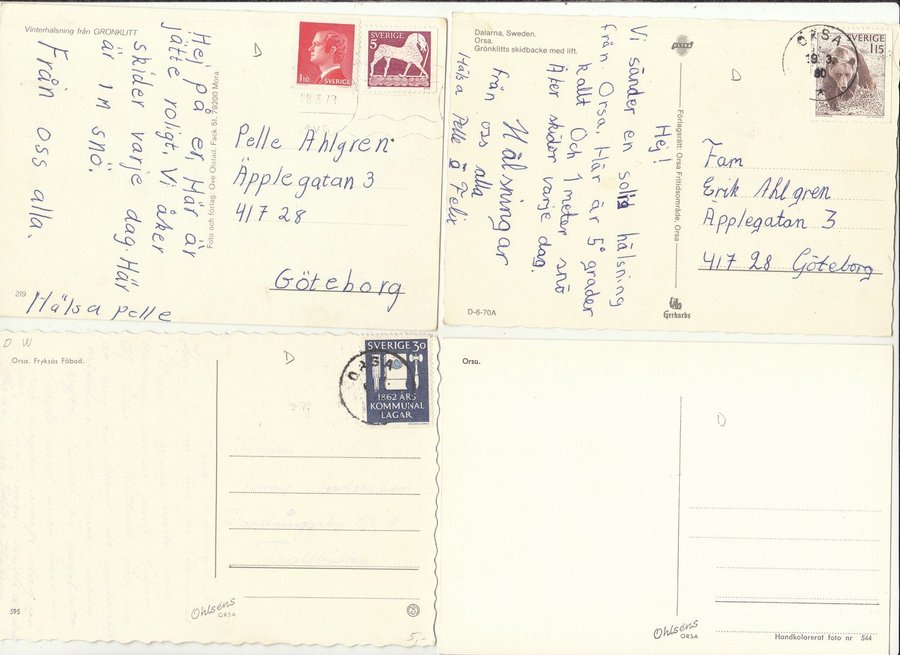 Vinterhälsning från GRÖNKLITT
D
1.10 SVERIGE
SVERIGE
5
Hej på er. Här är
jätte roligt. Vi åker
skider varje dag. Här
är 1 m snö.
Från oss alla.
Hälsa pelle
219
Foto och förlag: Ove Olstad, Fack 51, 79200 Mora
Pelle Ahlgren
Äpplegatan 3
417 28
Göteborg
Dalarna, Sweden.
Orsa.
Grönklitts skidbacke med lift.
ULTRA
D
ORSA
SVERIGE
1.15
80
Hej!
Vi sänder en solig hälsning
från Orsa. Här är 5° grader
kallt Och 1 meter snö
Åker skider varje dag.
Hälsningar
från oss alla
Hälsa Pelle o Felix
Förlagsrätt: Orsa Fritidsområde, Orsa
Fam
Erik Ahlgren
Äpplegatan 3
417 28 Göteborg
D-6-70A
Gerhards
D W
Orsa. Fryksås Fäbod.
D
ORSA
SVERIGE 30
1862 ÅRS
KOMMUNAL
LAGAR
595
Ohlséns
ORSA
5,-
Orsa.
D
Ohlséns
ORSA
Handkolorerat foto nr 544